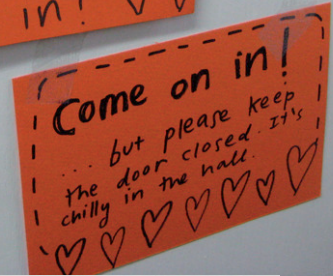 in!
Come on in!
... but please keep
the door closed. It's
chilly in the hall.